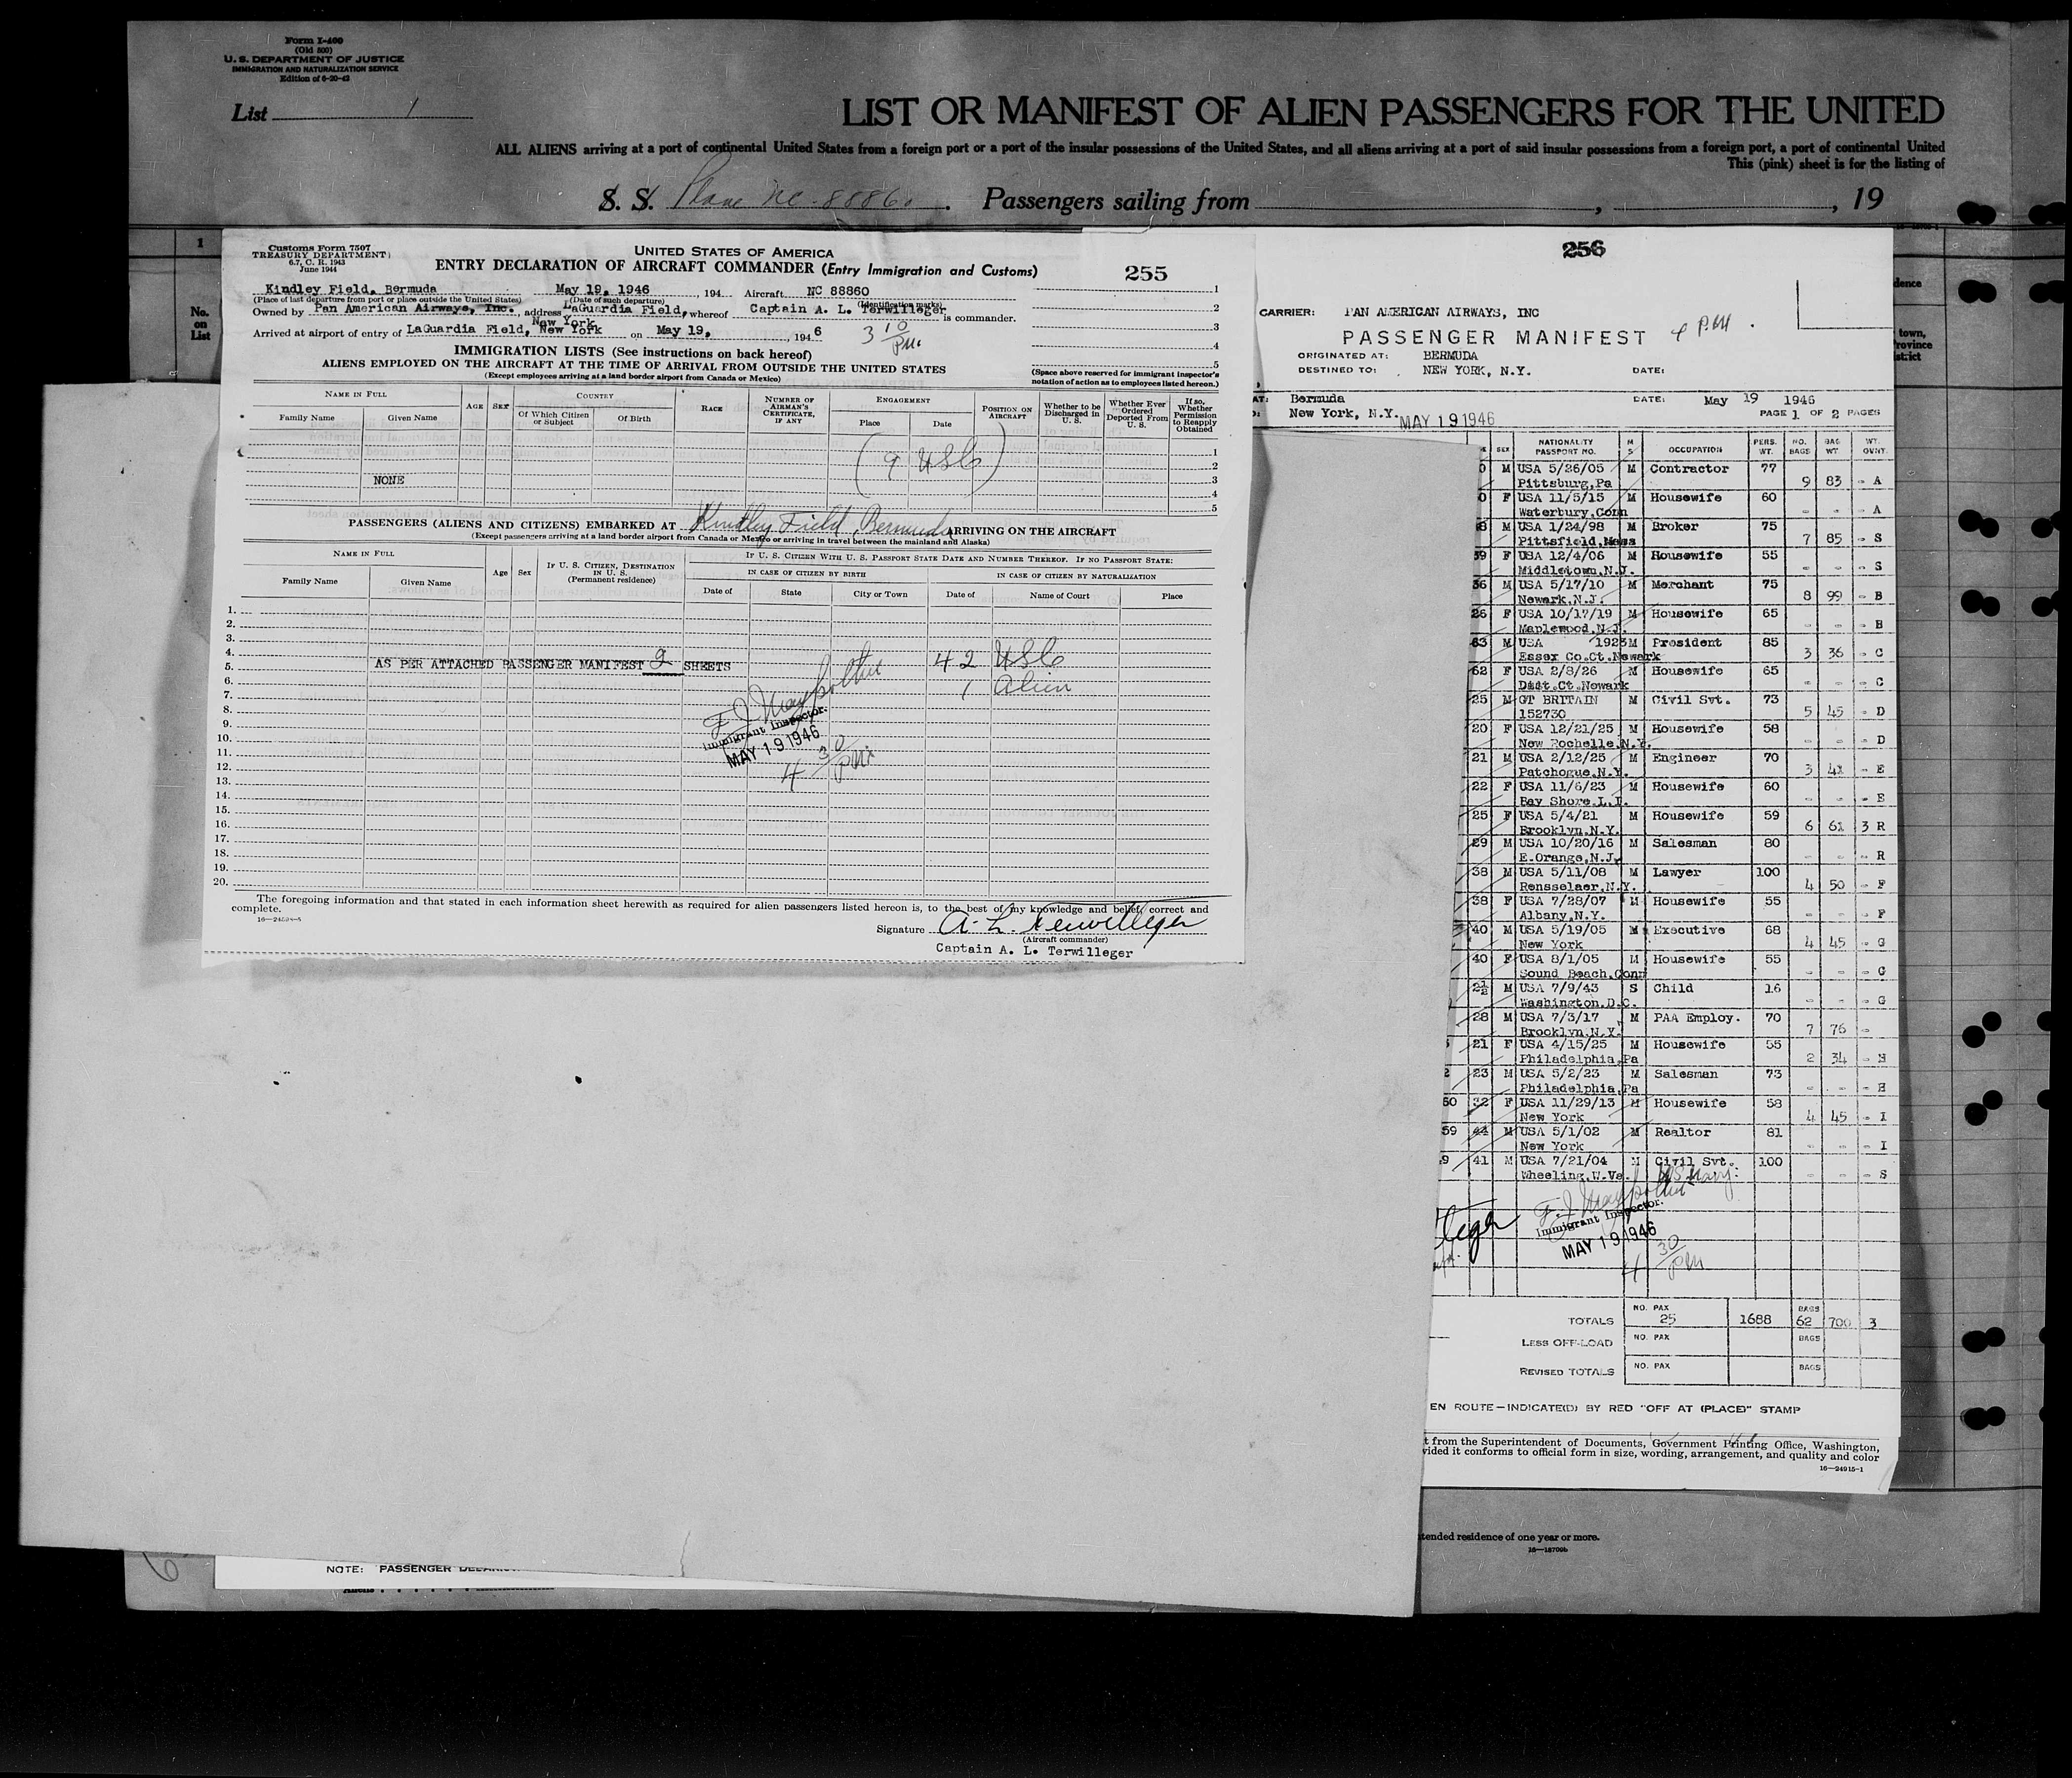 Form I-400
(Old 500)
U. S. DEPARTMENT OF JUSTICE
IMMIGRATION AND NATURALIZATION SERVICE
Edition of 6-20-42
List 1
LIST OR MANIFEST OF ALIEN PASSENGERS FOR THE UNITED
ALL ALIENS arriving at a port of continental United States from a foreign port or a port of the insular possessions of the United States, and all aliens arriving at a port of said insular possessions from a foreign port, a port of continental United
This (pink) sheet is for the listing of
S. S. Plane NC-88860. Passengers sailing from , , 19
1
No.
on
List
Customs Form 7507
TREASURY DEPARTMENT
6.7, C. R. 1943
June 1944
UNITED STATES OF AMERICA
ENTRY DECLARATION OF AIRCRAFT COMMANDER (Entry Immigration and Customs)
255
Kindley Field, Bermuda May 19, 1946, 194 Aircraft NC 88860
(Place of last departure from port or place outside the United States) (Date of such departure) (Identification marks)
Owned by Pan American Airways, Inc., address LaGuardia Field, New York whereof Captain A. L. Terwilleger is commander.
Arrived at airport of entry of LaGuardia Field, New York on May 19, 1946
3 10 PM.
1
2
3
4
5
(Space above reserved for immigrant inspector's
notation of action as to employees listed hereon.)
IMMIGRATION LISTS (See instructions on back hereof)
ALIENS EMPLOYED ON THE AIRCRAFT AT THE TIME OF ARRIVAL FROM OUTSIDE THE UNITED STATES
(Except employees arriving at a land border airport from Canada or Mexico)
NAME IN FULL AGE SEX COUNTRY RACE NUMBER OF AIRMAN'S CERTIFICATE, IF ANY ENGAGEMENT POSITION ON AIRCRAFT Whether to be Discharged in U. S. Whether Ever Ordered Deported From U. S. If so, Whether Permission to Reapply Obtained
Family Name Given Name Of Which Citizen or Subject Of Birth Place Date
1
2
NONE 3
4
5
(9 USC)
PASSENGERS (ALIENS AND CITIZENS) EMBARKED AT Kindley Field, Bermuda ARRIVING ON THE AIRCRAFT
(Except passengers arriving at a land border airport from Canada or Mexico or arriving in travel between the mainland and Alaska)
NAME IN FULL Age Sex IF U. S. CITIZEN, DESTINATION IN U. S. (Permanent residence) IF U. S. CITIZEN WITH U. S. PASSPORT STATE DATE AND NUMBER THEREOF. IF NO PASSPORT STATE:
IN CASE OF CITIZEN BY BIRTH IN CASE OF CITIZEN BY NATURALIZATION
Family Name Given Name Date of State City or Town Date of Name of Court Place
1.
2.
3.
4.
5. AS PER ATTACHED PASSENGER MANIFEST 2 SHEETS 42 USC
6. 1 Alien
7.
8.
9.
10.
11.
12.
13.
14.
15.
16.
17.
18.
19.
20.
Immigrant Inspector.
MAY 19 1946
4 30 PM
The foregoing information and that stated in each information sheet herewith as required for alien passengers listed hereon is, to the best of my knowledge and belief, correct and
complete.
Signature A. L. Terwilleger
(Aircraft commander)
Captain A. L. Terwilleger
256
CARRIER: PAN AMERICAN AIRWAYS, INC
PASSENGER MANIFEST 4 PM
ORIGINATED AT: BERMUDA
DESTINED TO: NEW YORK, N.Y. DATE:
AT: Bermuda DATE: May 19 1946
New York, N.Y. MAY 19 1946 PAGE 1 OF 2 PAGES
SEX NATIONALITY PASSPORT NO. M S OCCUPATION PERS. WT. NO. BAGS BAG WT. WT. OVWT.
0 M USA 5/26/05 M Contractor 77
Pittsburg,Pa 9 83 - A
0 F USA 11/5/15 M Housewife 60
Waterbury,Conn - - - A
8 M USA 1/24/98 M Broker 75
Pittsfield,Mass 7 85 - S
39 F USA 12/4/06 M Housewife 55
Middletown,N.J. - - - S
36 M USA 5/17/10 M Merchant 75
Newark,N.J. 8 99 - B
26 F USA 10/17/19 M Housewife 65
Maplewood,N.J. - - - B
63 M USA 1923 M President 85
Essex Co.Ct.Newark 3 36 - C
62 F USA 2/8/26 M Housewife 65
Dist.Ct.Newark - - - C
25 M GT BRITAIN M Civil Svt. 73
152730 5 45 - D
20 F USA 12/21/25 M Housewife 58
New Rochelle,N.Y. - - - D
21 M USA 2/12/25 M Engineer 70
Patchogue,N.Y. 3 41 - E
22 F USA 11/6/23 M Housewife 60
Bay Shore,L.I. - - - E
25 F USA 5/4/21 M Housewife 59
Brooklyn,N.Y. 6 61 3 R
29 M USA 10/20/16 M Salesman 80
E.Orange,N.J. - - - R
38 M USA 5/11/08 M Lawyer 100
Rensselaer,N.Y. 4 50 - F
38 F USA 7/28/07 M Housewife 55
Albany,N.Y. - - - F
40 M USA 5/19/05 M Executive 68
New York 4 45 - G
40 F USA 8/1/05 M Housewife 55
Sound Beach,Conn - - - G
2½ M USA 7/9/43 S Child 16
Washington,D.C. - - - G
28 M USA 7/3/17 M PAA Employ. 70
Brooklyn,N.Y. 7 76 -
21 F USA 4/15/25 M Housewife 55
Philadelphia,Pa 2 34 - H
23 M USA 5/2/23 M Salesman 73
Philadelphia,Pa - - - H
60 32 F USA 11/29/13 M Housewife 58
New York 4 45 - I
59 44 M USA 5/1/02 M Realtor 81
New York - - - I
9 41 M USA 7/21/04 M Civil Svt. 100
Wheeling,W.Va. US Navy. - - - S
Immigrant Inspector.
MAY 19 1946
4 30 PM
TOTALS NO. PAX 25 1688 BAGS 62 700 3
LESS OFF-LOAD NO. PAX BAGS
REVISED TOTALS NO. PAX BAGS
EN ROUTE—INDICATE(D) BY RED "OFF AT (PLACE)" STAMP
t from the Superintendent of Documents, Government Printing Office, Washington,
vided it conforms to official form in size, wording, arrangement, and quality and color
16—24915-1
dence
town,
rovince
strict
tended residence of one year or more.
16—18709b
NOTE: PASSENGER
Aliens